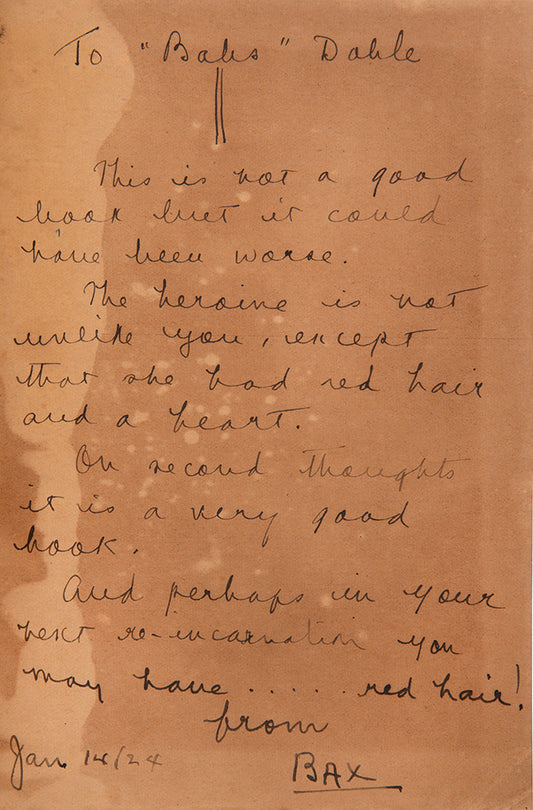 To "Babs" Dable
This is not a good
book but it could
have been worse.
The heroine is not
unlike you, except
that she had red hair
and a heart.
On second thoughts
it is a very good
book.
And perhaps in your
next re-incarnation you
may have ..... red hair!
from
Jan 14/24
BAX